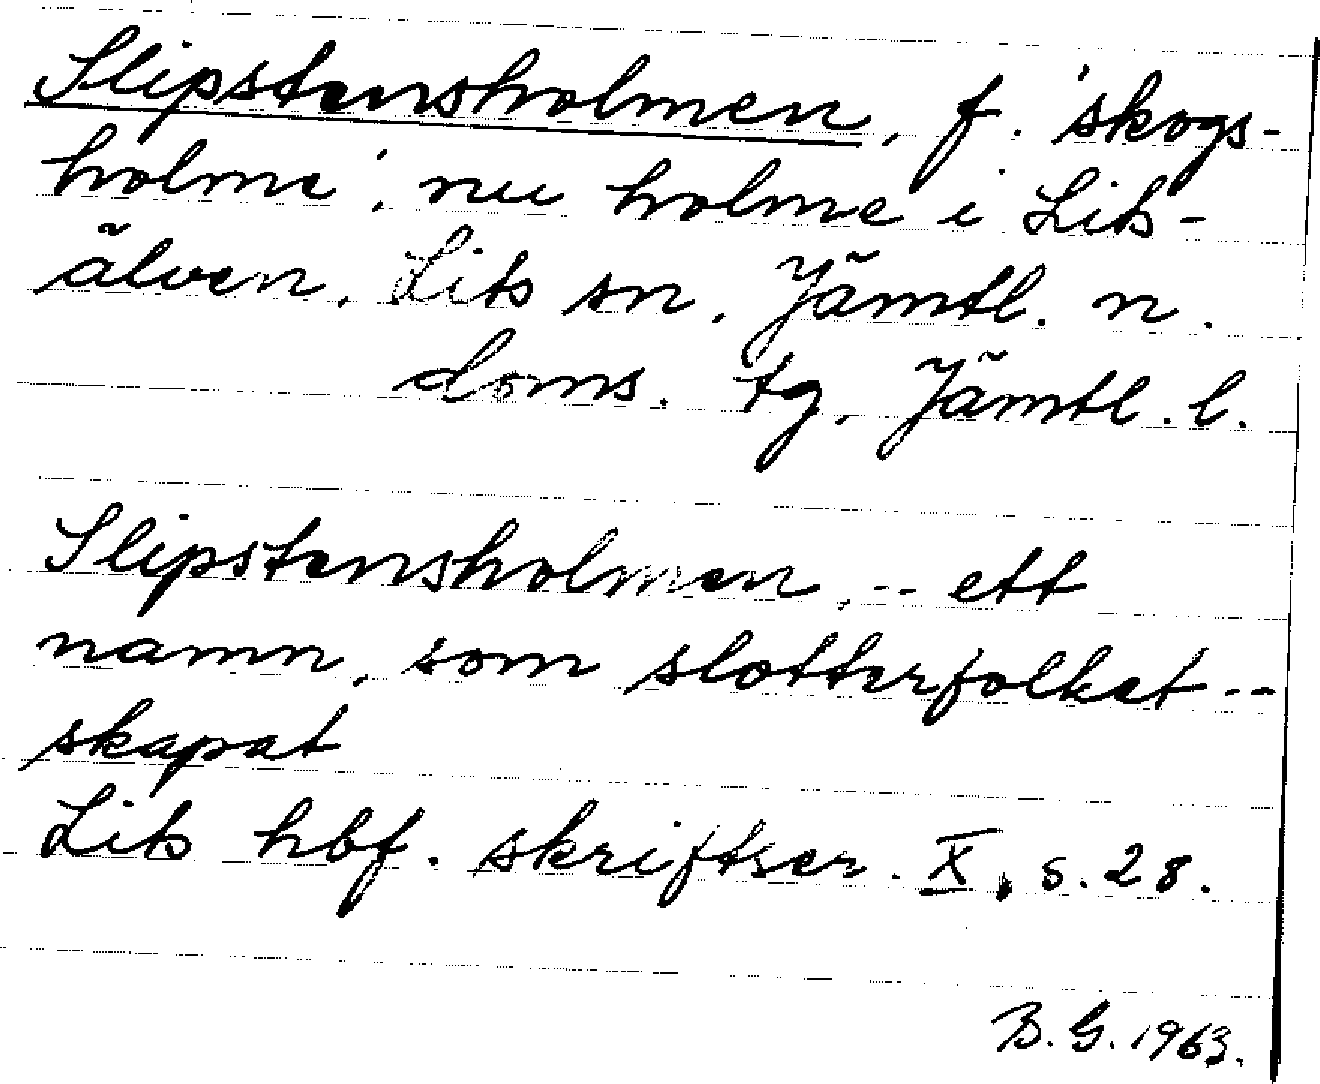 Slipstensholmen, f. 'skogs-
holme', nu holme i Lits-
älven, Lits sn, Jämtl. n.
doms. tg, Jämtl. l.
Slipstensholmen, -- ett
namn, som slotterfolket --
skapat
Lits hbf. skriftser. X, s. 28.
B. G. 1963.